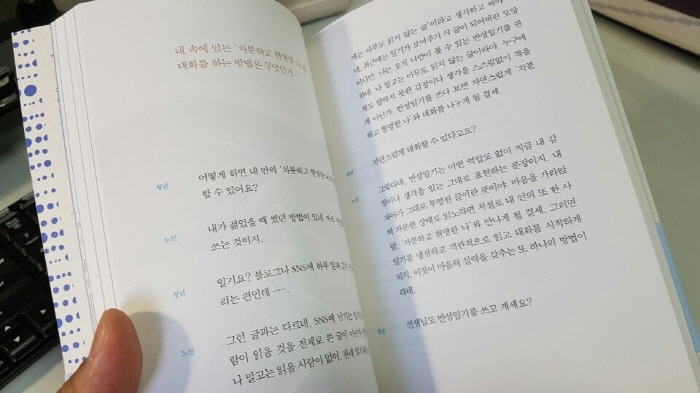 내 속에 있는 '차분하고 현명한
대화를 하는 방법은 무엇일까
청년
어떻게 하면 내 안의 '차분하고
할 수 있어요?
노인
내가 젊었을 때 썼던 방법이 있네.
쓰는 것이지.
청년
일기요? 블로그나 SNS에 하루 일과
리는 편인데……
노인
그런 글과는 다르네. SNS에 남기는
람이 읽을 것을 전제로 쓴 글이
나 말고는 읽을 사람이 없어. 원래 일기
에는 아무도 읽지 않는 글'이라고 생각하고 써야
네. 최근에는 일기가 보여주기 식 글이 되어버린 모양
이다만. 나는 오직 나만이 볼 수 있는 반성일기를 권
하네. 나 말고는 아무도 읽지 않는 글이라야, 누구에
게도 말하지 못한 감정이나 생각을 스스럼없이 적을
게 아닌가. 반성일기를 쓰다 보면 자연스럽게 '차분
하고 현명한 나'와 대화를 나누게 될 걸세.
청년
자연스럽게 대화할 수 있다고요?
노인
그렇다네. 반성일기는 어떤 억압도 없이 지금 내 감
정이나 생각을 있는 그대로 표현하는 문장이지. 내
자아가 그대로 투영된 글이란 뜻이야. 마음을 가라앉
혀 차분한 상태로 읽노라면 저절로 내 안의 또 한 사
람, '차분하고 현명한 나'와 만나게 될 걸세. 그러면
일기를 냉정하고 객관적으로 읽고 대화를 시작하게
되지. 이것이 마음의 실력을 갖추는 또 하나의 방법이
라네.
청년
선생님도 반성일기를 쓰고 계세요?